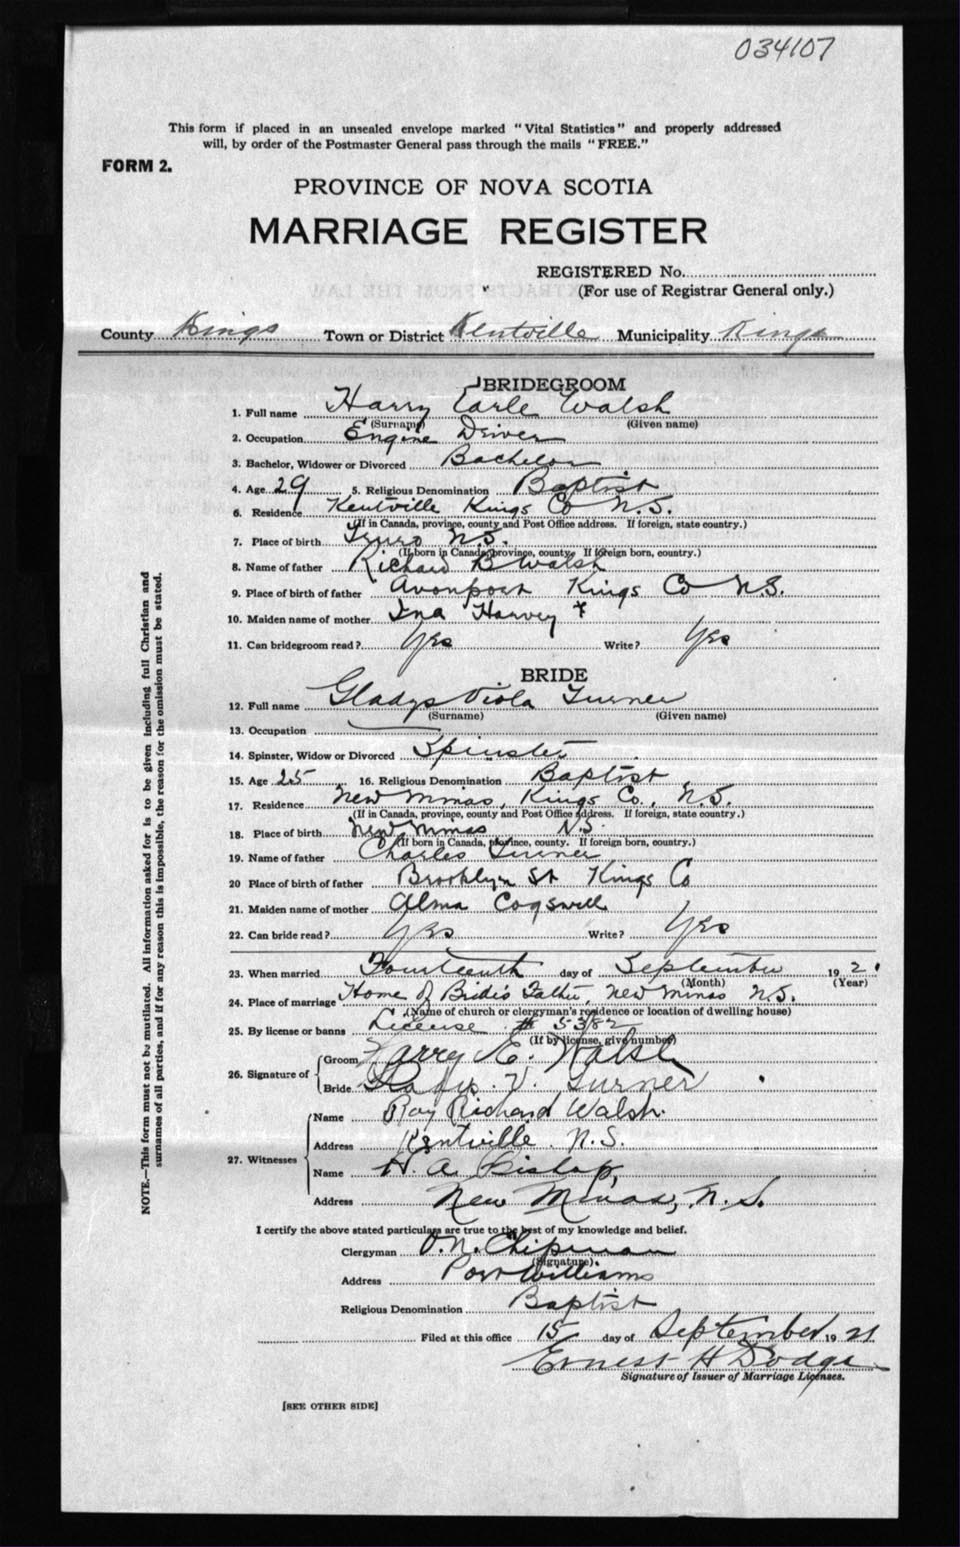 034107
This form if placed in an unsealed envelope marked "Vital Statistics" and properly addressed
will, by order of the Postmaster General pass through the mails "FREE."
FORM 2.
PROVINCE OF NOVA SCOTIA
MARRIAGE REGISTER
REGISTERED No.
(For use of Registrar General only.)
County Kings Town or District Kentville Municipality Kings
BRIDEGROOM
1. Full name Harry Earle Walsh
(Surname) (Given name)
2. Occupation Engine Driver
3. Bachelor, Widower or Divorced Bachelor
4. Age 29 5. Religious Denomination Baptist
6. Residence Kentville Kings Co N.S.
(If in Canada, province, county and Post Office address. If foreign, state country.)
7. Place of birth Truro N.S.
(If born in Canada, province, county. If foreign born, country.)
8. Name of father Richard B Walsh
9. Place of birth of father Avonport Kings Co N.S.
10. Maiden name of mother Ina Harvey
11. Can bridegroom read? Yes Write? Yes
BRIDE
12. Full name Gladys Viola Turner
(Surname) (Given name)
13. Occupation
14. Spinster, Widow or Divorced Spinster
15. Age 25 16. Religious Denomination Baptist
17. Residence New Minas, Kings Co., N.S.
(If in Canada, province, county and Post Office address. If foreign, state country.)
18. Place of birth New Minas N.S.
(If born in Canada, province, county. If foreign born, country.)
19. Name of father Charles Turner
20 Place of birth of father Brooklyn St Kings Co
21. Maiden name of mother Alma Cogswell
22. Can bride read? Yes Write? Yes
23. When married Fourteenth day of September 1921
(Month) (Year)
24. Place of marriage Home of Bride's Father, New Minas N.S.
(Name of church or clergyman's residence or location of dwelling house)
25. By license or banns License # 5382
(If by license, give number)
26. Signature of Groom Harry E. Walsh
Bride Gladys. V. Turner
27. Witnesses
Name Roy Richard Walsh.
Address Kentville. N.S.
Name H. A. Bishop,
Address New Minas, N.S.
I certify the above stated particulars are true to the best of my knowledge and belief.
Clergyman O. N. Chipman
(Signature).
Address Port Williams
Religious Denomination Baptist
Filed at this office 15 day of September 1921
Ernest H Dodge
Signature of Issuer of Marriage Licenses.
[SEE OTHER SIDE]
NOTE.—This form must not be mutilated. All information asked for is to be given including full Christian and
surnames of all parties, and if for any reason this is impossible, the reason for the omission must be stated.